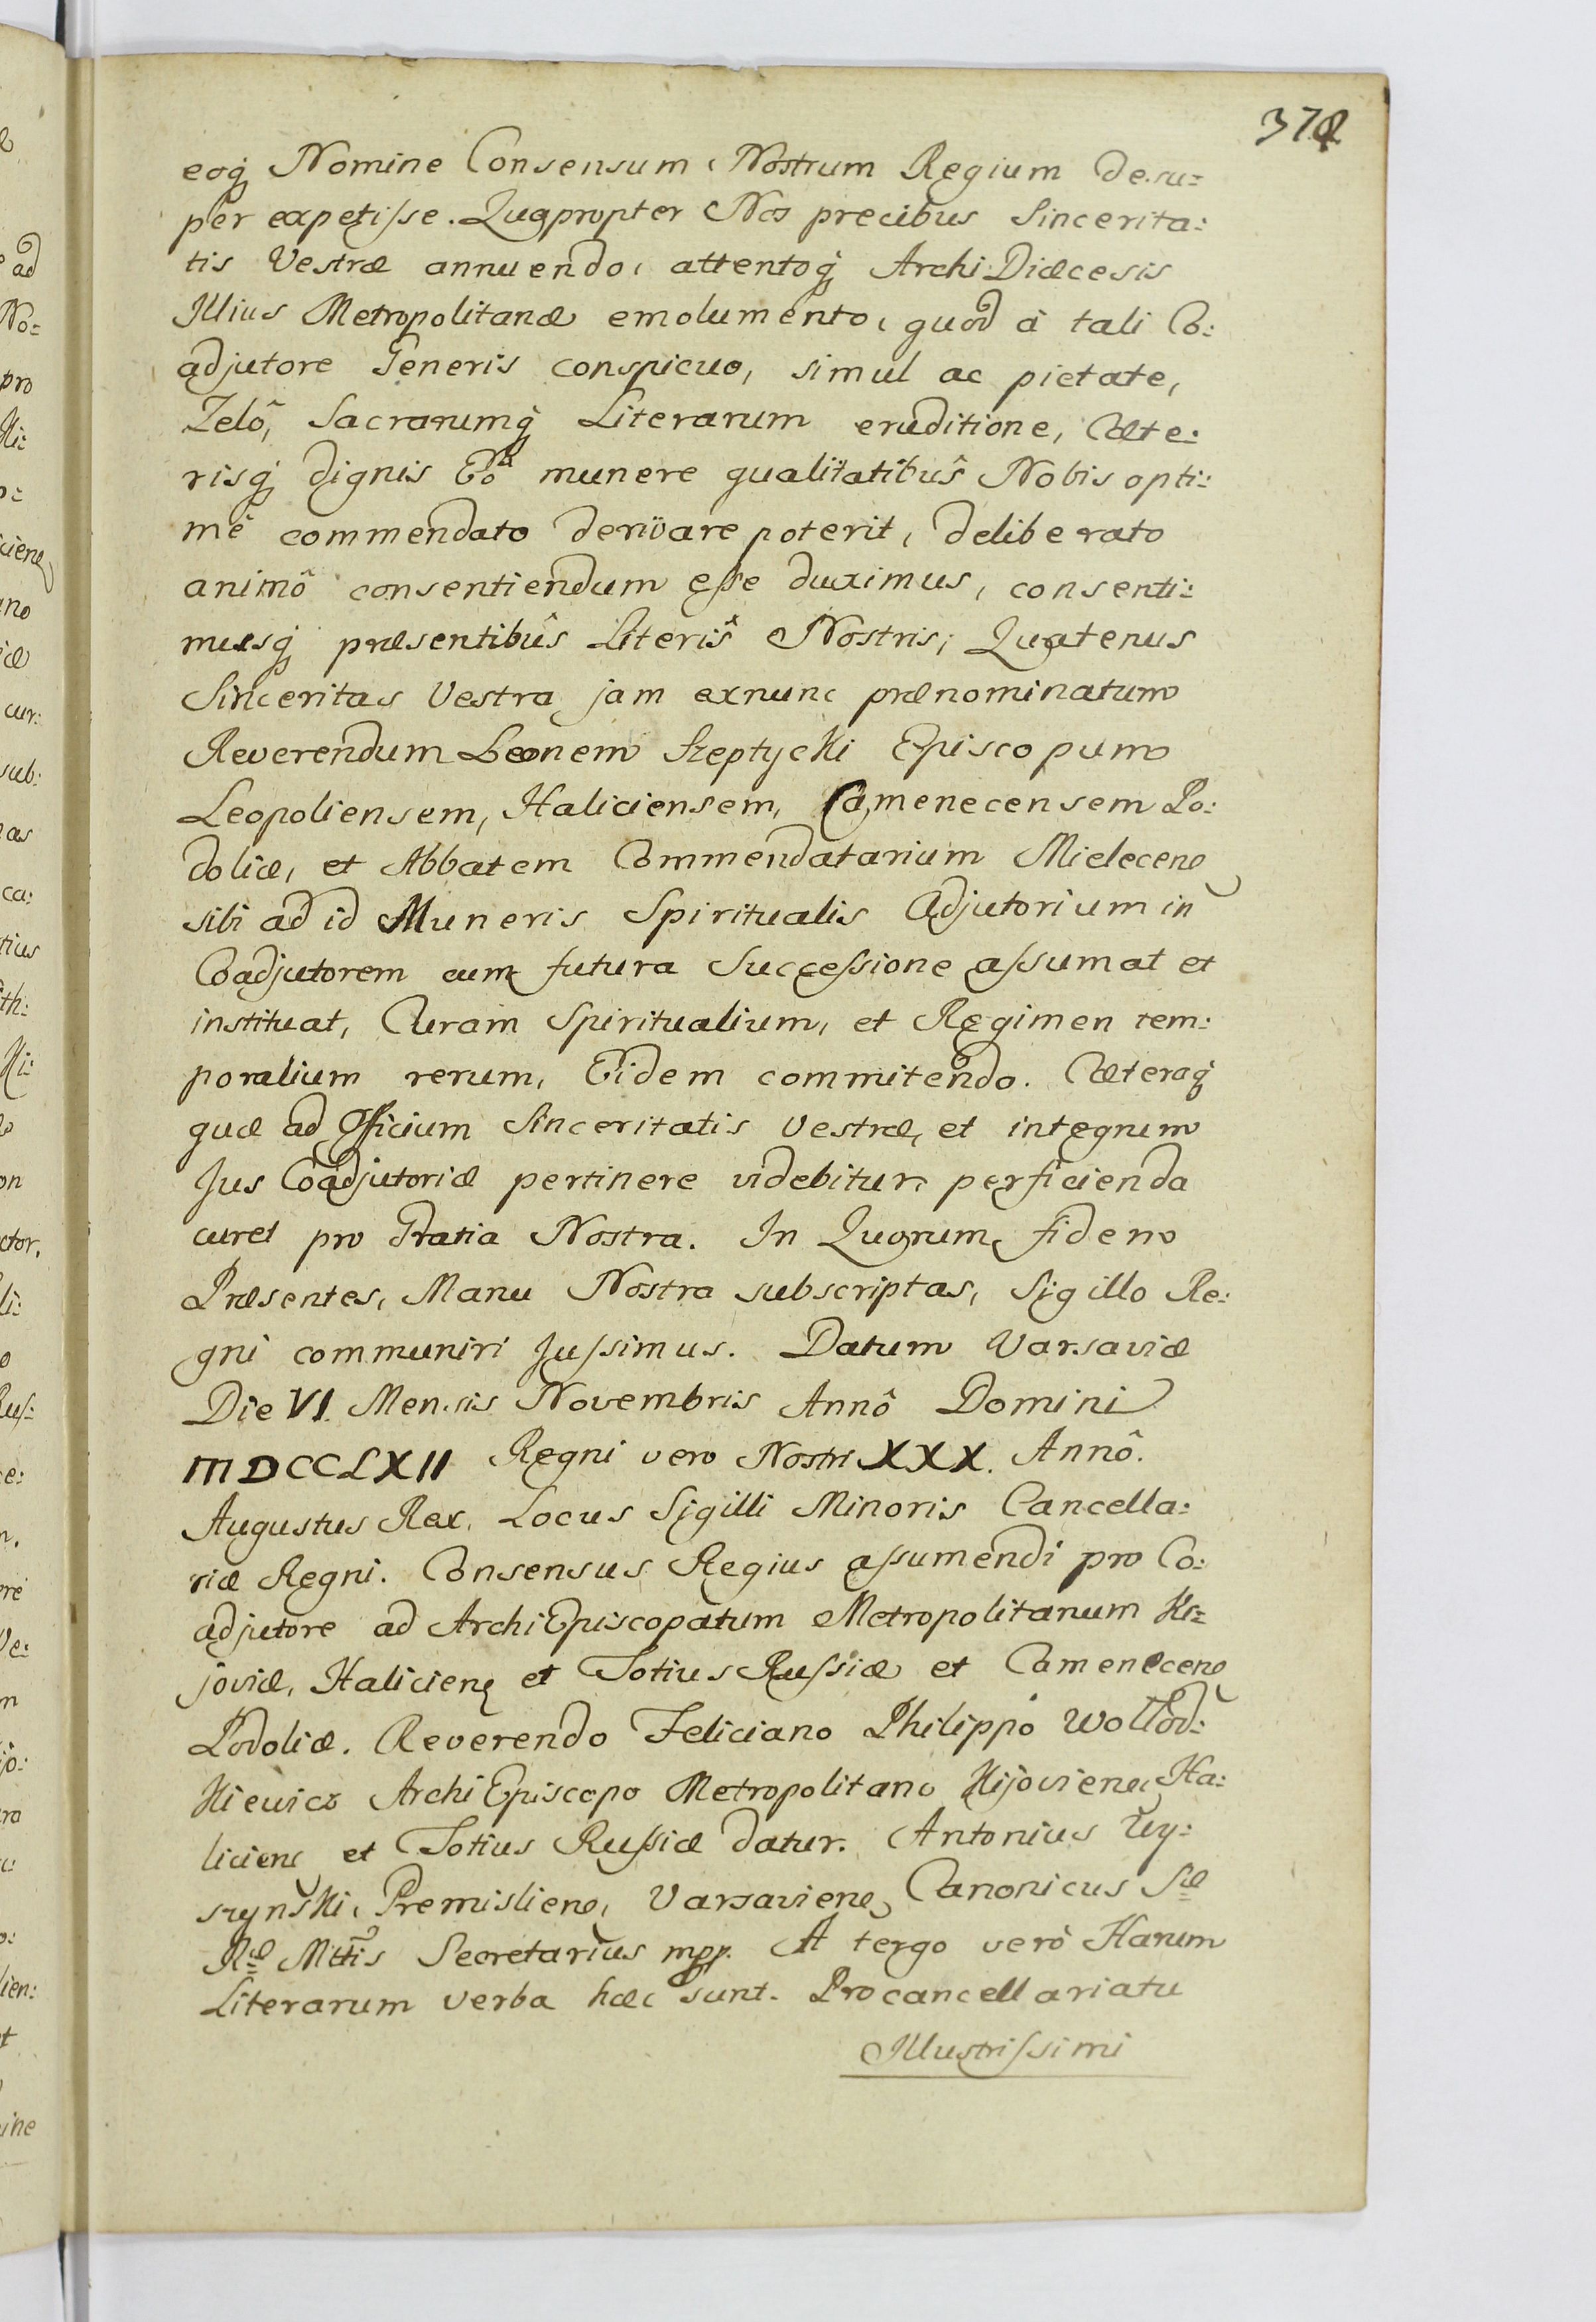 372
eoq Nomine Consensum Nostrum Regium desu=
per expetisse. Quapropter Nos precibus Sincerita:
tis Vestræ annuendo, attentoq Archi Diæcesis
Illius Metropolitanæ emolumento, quod à tali Co:
adjutore Generis conspicuo, simul ac pietate,
Zelô, Sacrarumq Literarum eruditione, Cæte:
risq dignis Eô munere qualitatibus Nobis opti:
mè commendato derivare poterit, deliberato
animô consentiendum esse duximus, consenti:
musq præsentibus Literis Nostris, Quatenus
Sinceritas Vestra jam exnunc prænominatum
Reverendum Leonem Szeptycki Episcopum
Leopoliensem, Haliciensem, Camenecensem Po:
doliæ, et Abbatem Commendatarium Mielecen
sibi ad id Muneris Spiritualis Adjutorium in
Coadjutorem cum futura Successione assumat et
instituat, Curam Spiritualium, et Regimen tem:
poralium rerum, Eidem commitendo. Cæteraq
quæ ad Officium Sinceritatis Vestræ, et integrum
Jus Coadjutoriæ pertinere videbitur, perficienda
curet pro Gratia Nostra. In Quorum fidem
Præsentes, Manu Nostra subscriptas, Sigillo Re:
gni communiri Jussimus. Datum Varsaviæ
Die VI. Mensis Novembris Annô Domini
MDCCLXII Regni vero Nostri XXX. Annô.
Augustus Rex. Locus Sigilli Minoris Cancella:
riæ Regni. Consensus Regius assumendi pro Co:
adjutore ad ArchiEpiscopatum Metropolitanum Ki=
joviæ, Halicien et Totius Russiæ et Camenecen
Podoliæ. Reverendo Feliciano Philippo Wołłod:
Kiewicz ArchiEpiscopo Metropolitano Kijovien, Ha:
licien et Totius Russiæ datur. Antonius Uy:
szynski, Premislien, Varsavien, Canonicus Sæ
Ræ Mttis Secretarius mpp. A tergo verò Harum
Literarum verba hæc sunt. Procancellariatu
Illustrissimi